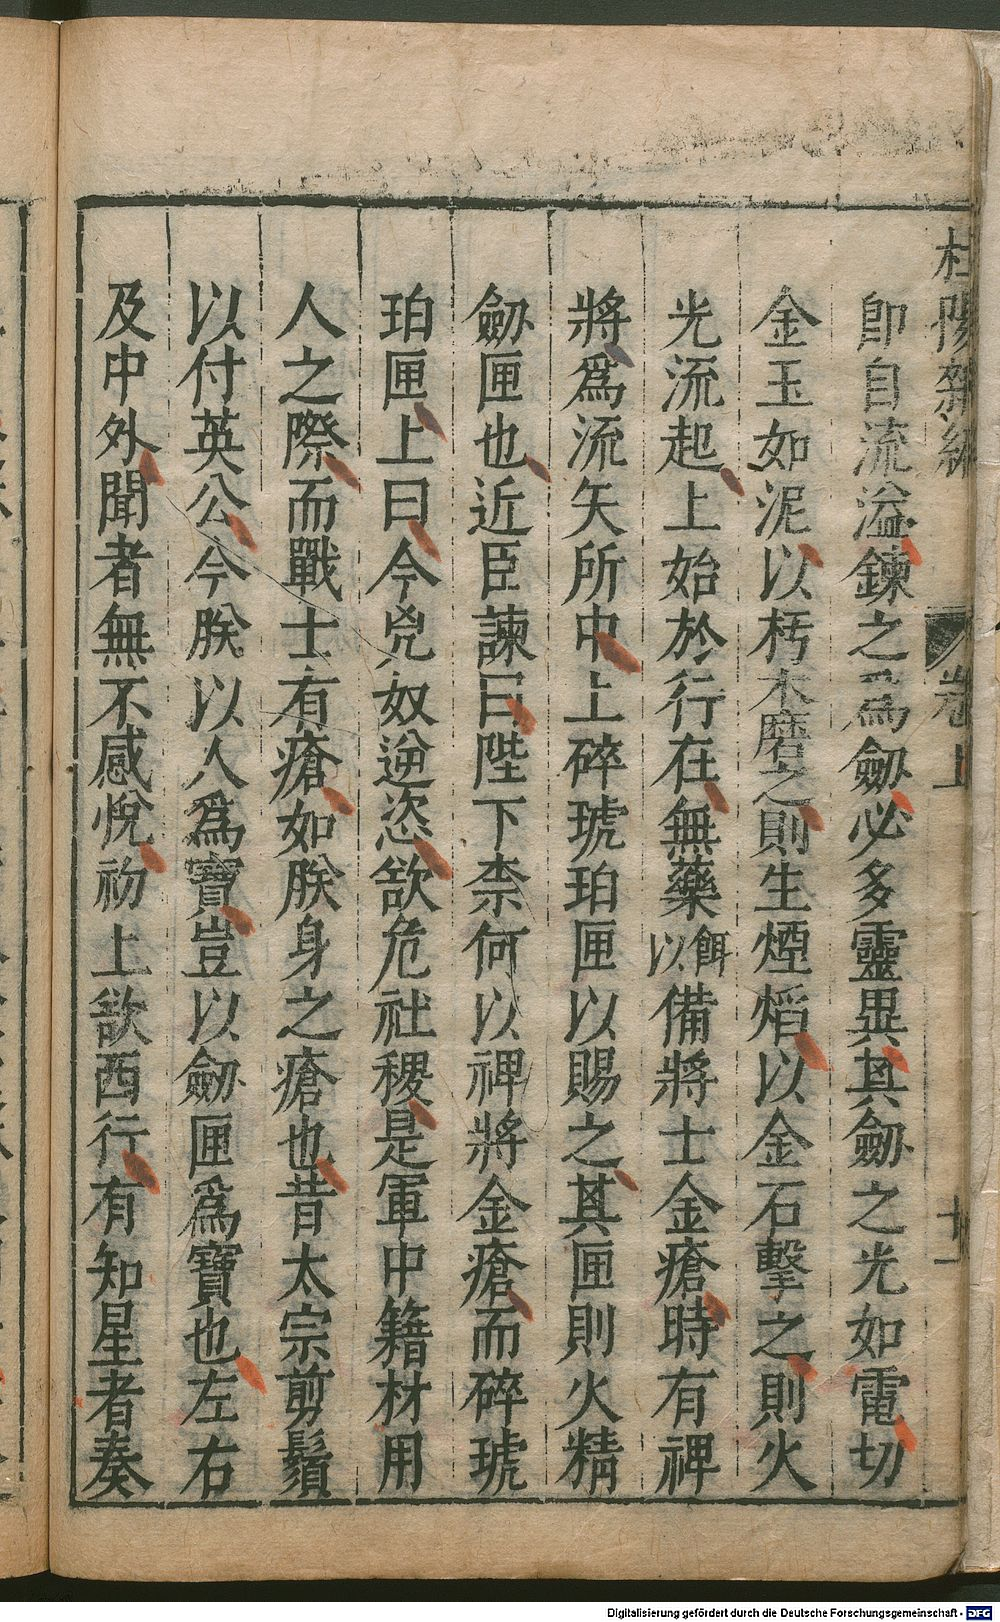 杜陽雜編
卷上
十一
卽自流溢鍊之爲劒必多靈異其劒之光如電切
金玉如泥以朽木磨之則生煙焰以金石擊之則火
光流起上始於行在無藥餌以備將士金瘡時有裨
將爲流矢所中上碎琥珀匣以賜之其匣則火精
劒匣也近臣諫曰陛下柰何以裨將金瘡而碎琥
珀匣上曰今兇奴逆恣欲危社稷是軍中籍材用
人之際而戰士有瘡如朕身之瘡也昔太宗剪鬚
以付英公今朕以人爲寶豈以劒匣爲寶也左右
及中外聞者無不感悅初上欲西行有知星者奏
Digitalisierung gefördert durch die Deutsche Forschungsgemeinschaft - DFG